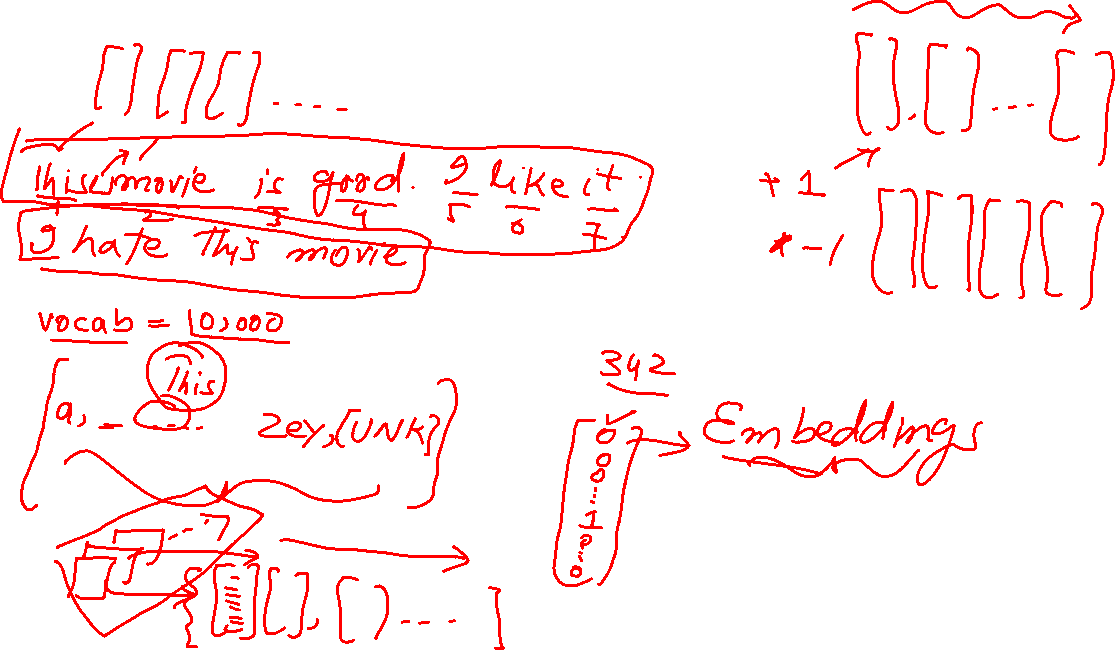 This movie is good. I like it.
1 2 3 4 5 6 7
I hate This movie
+ 1
* -1
vocab = 10,000
This
a, _ ..... zey, [UNK]
342
0
0
0
...
1
0
...
0
Embeddings